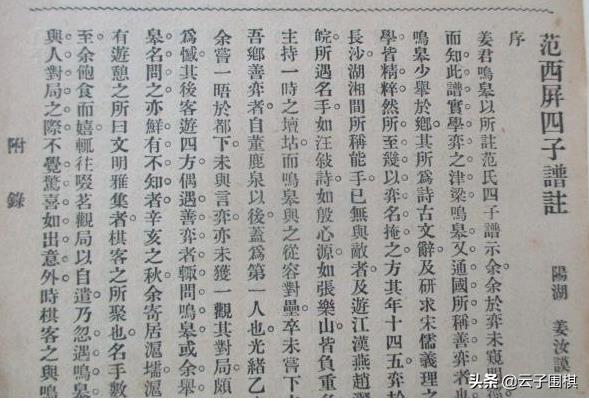 范西屏四子譜註
陽湖 姜汝謨
序
姜君鳴皋以所註范氏四子譜示余余於弈未窺
而知此譜實學弈之津梁鳴皋又通國所稱善弈者也
鳴皋少舉於鄉其所爲詩古文辭及研求宋儒義理之
學皆精粹然所至幾以弈名掩之方其年十四五弈於
長沙湖湘間所稱能手已無與敵者及遊江漢燕趙
皖所遇名手如汪敍詩如殷心源如張樂山皆負重名
主持一時之壇坫而鳴皋與之從容對壘卒未嘗下
吾鄉善弈者自董鹿泉以後蓋爲第一人也光緒乙
余嘗一晤於都下未與言弈亦未獲一觀其對局頗
爲憾其後客遊四方偶遇善弈者輒問鳴皋或余舉
皋名問之亦鮮有不知者辛亥之秋余寄居滬壖滬
有遊憩之所曰文明雅集者棋客之所聚也名手數
至余飽食而嬉輒往啜茗觀局以自遣乃忽遇鳴皋
與人對局之際不覺驚喜如出意外時棋客之與鳴
附錄
头条 @云子围棋